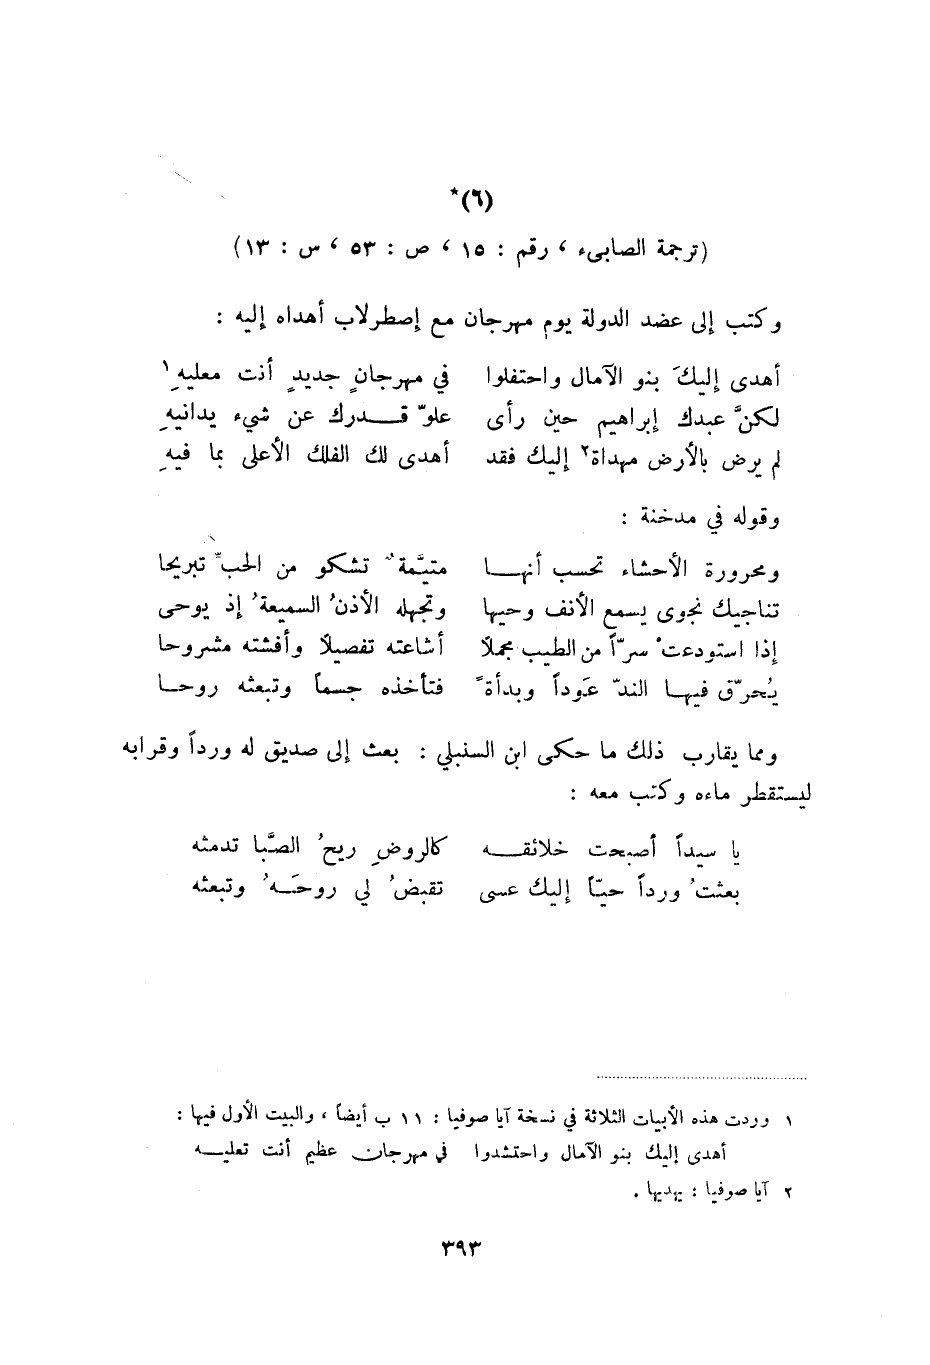 (٦)*
(ترجمة الصابىء ، رقم : ١٥ ، ص : ٥٣ ، س : ١٣)
وكتب إلى عضد الدولة يوم مهرجان مع إصطرلاب أهداه إليه :
أهدى إليكَ بنو الآمال واحتفلوا في مهرجانٍ جديدٍ أنت معليهِ١
لكنَّ عبدك إبراهيم حين رأى علوّ قدرك عن شيء يدانيهِ
لم يرض بالأرض مهداة٢ إليك فقد أهدى لك الفلك الأعلى بما فيهِ
وقوله في مدخنة :
ومحرورة الأحشاء تحسب أنها متيَّمةٌ تشكو من الحبّ تبريحا
تناجيك نجوى يسمع الأنف وحيها وتجهله الأذنُ السميعةُ إذ يوحى
إذا استودعتْ سرّاً من الطيب مجملاً أشاعته تفصيلاً وأفشته مشروحا
يُحرّق فيها الندّ عَوداً وبدأةً فتأخذه جسماً وتبعثه روحا
ومما يقارب ذلك ما حكى ابن السنبلي : بعث إلى صديق له ورداً وقرابه
ليستقطر ماءه وكتب معه :
يا سيداً أصبحت خلائقه كالروضِ ريحُ الصَّبا تدمثه
بعثتُ ورداً حيّاً إليك عسى تقبضُ لي روحَهُ وتبعثه
١ وردت هذه الأبيات الثلاثة في نسخة آيا صوفيا : ١١ ب أيضاً ، والبيت الأول فيها :
أهدى إليك بنو الآمال واحتشدوا في مهرجان عظيم أنت تعليه
٢ آيا صوفيا : يهديها .
٣٩٣